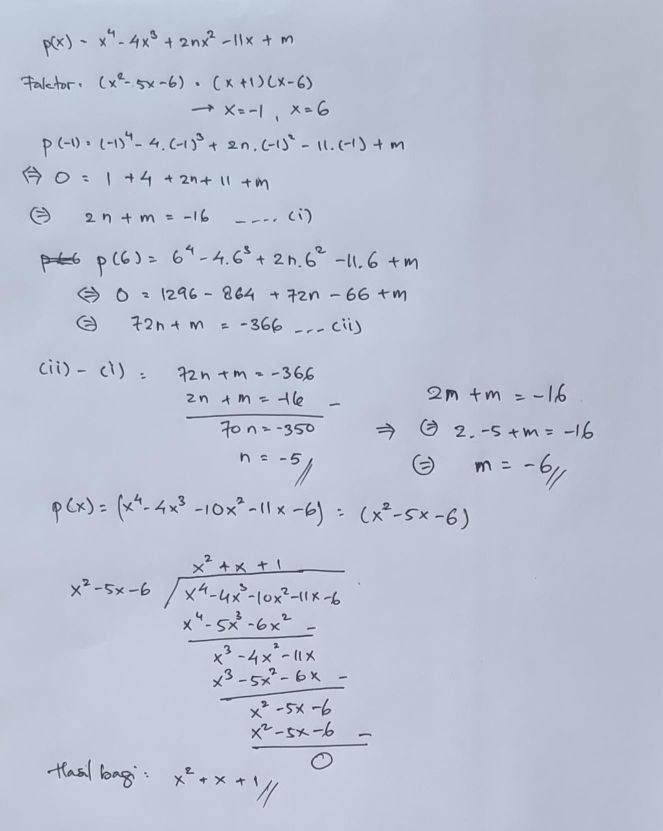 p(x) = x⁴ - 4x³ + 2nx² - 11x + m
Faktor : (x² - 5x - 6) = (x + 1)(x - 6)
→ x = -1 , x = 6
p(-1) = (-1)⁴ - 4.(-1)³ + 2n.(-1)² - 11.(-1) + m
⇔ 0 = 1 + 4 + 2n + 11 + m
⇔ 2n + m = -16 ---- (i)
p(6) = 6⁴ - 4.6³ + 2n.6² - 11.6 + m
⇔ 0 = 1296 - 864 + 72n - 66 + m
⇔ 72n + m = -366 --- (ii)
(ii) - (i) : 72n + m = -366
2n + m = -16 -
70n = -350
n = -5 //
2m + m = -16
⇒ ⇔ 2. -5 + m = -16
⇔ m = -6 //
p(x) = (x⁴ - 4x³ - 10x² - 11x - 6) : (x² - 5x - 6)
x² + x + 1
x² - 5x - 6 / x⁴ - 4x³ - 10x² - 11x - 6
x⁴ - 5x³ - 6x² -
x³ - 4x² - 11x
x³ - 5x² - 6x -
x² - 5x - 6
x² - 5x - 6 -
0
Hasil bagi : x² + x + 1 //